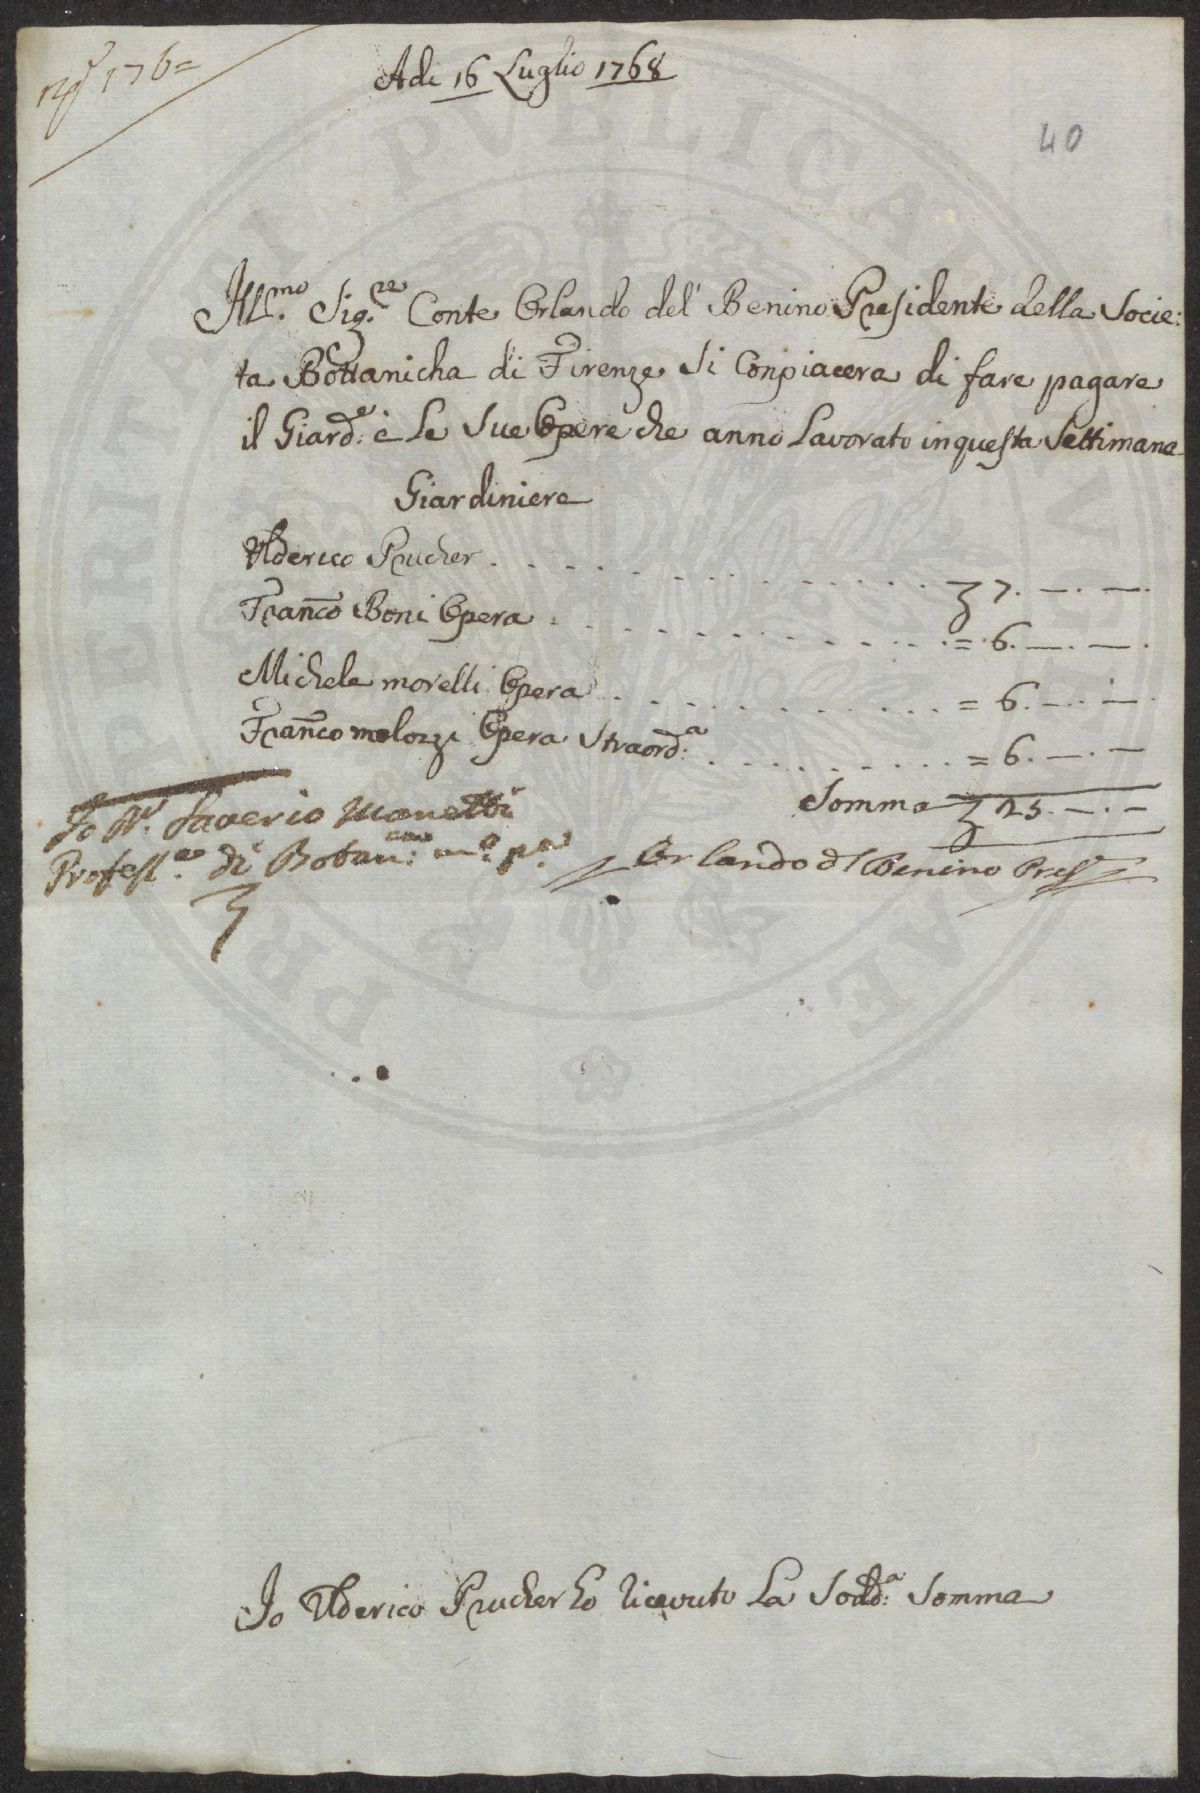 176=
Adi 16 Luglio 1768
40
Ill.mo Sig.re Conte Orlando del' Benino Presidente della Socie:
ta Bottanicha di Firenze Si Conpiacera di fare pagare
il Giard.e è Le Sue Opere che anno Lavorato in questa Settimana
Giardiniere
Ulderico Prucher . . . . . . . . . . . . . 7. —. —.
Franco Boni Opera . . . . . . . . . . . . = 6. —. —.
Michele morelli Opera . . . . . . . . . . = 6. —. —.
Franco melozzi Opera Straord.a . . . . . . . . = 6. —. —
Somma 25. —. —
Io Saverio Manetti
Profess.re di Botan.ca m.o p.a
Orlando del Benino Pres.
Io Ulderico Prucher ho ricevuto La Sodd.a Somma